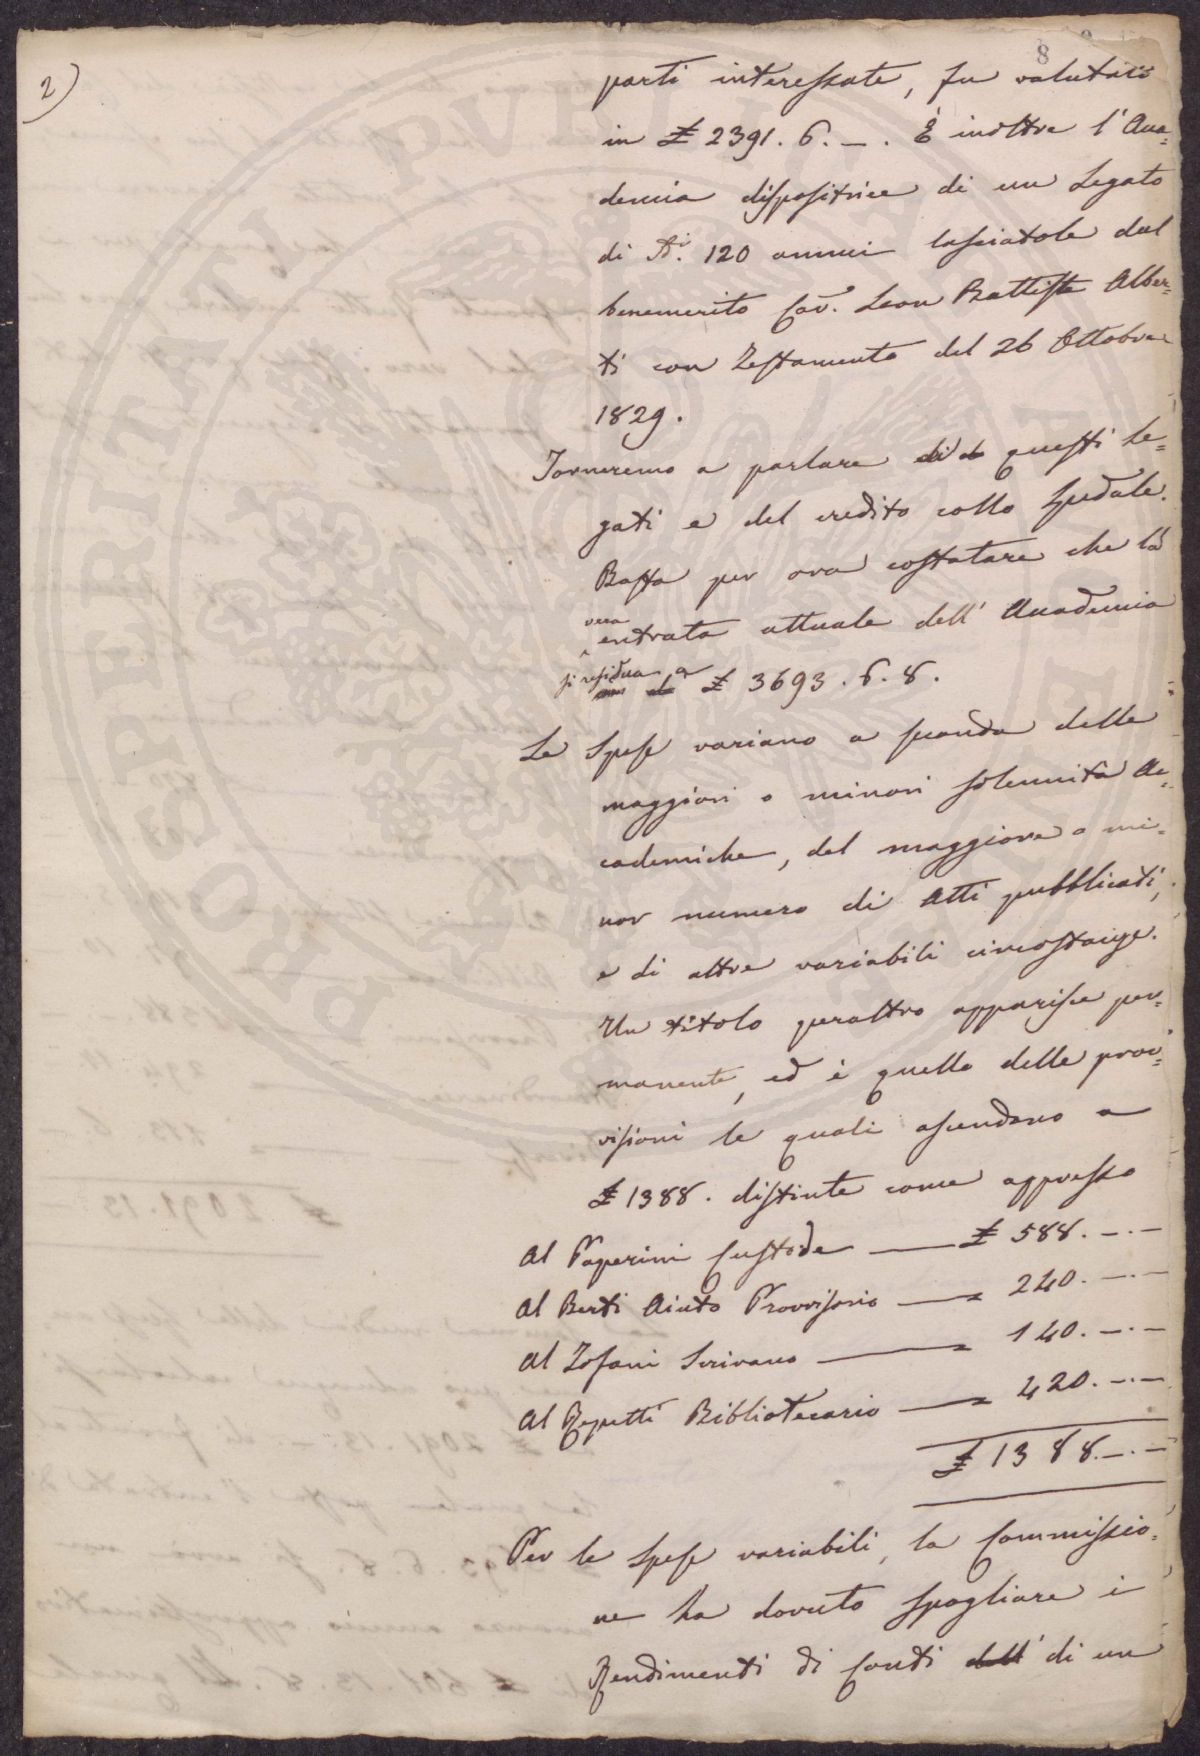 2)
8
parti interessate, fu valutato
in £ 2391. 6. – . È inoltre l'Acca=
demia dispositrice di un Legato
di 120 annui lasciatole dal
benemerito Cav. Leon Battista Alber=
ti con Testamento del 26 Ottobre
1829.
Torneremo a parlare di questi Le=
gati e del credito collo Spedale.
Basta per ora costatare che la
vera
entrata attuale dell' Accademia
si residua a
£ 3693. 6. 8.
Le Spese variano a seconda delle
maggiori o minori solennità Ac=
cademiche, del maggiore o mi=
nor numero di Atti pubblicati,
e di altre variabili circostanze.
Un titolo peraltro apparisce per=
manente, ed è quello delle prov=
visioni le quali ascendono a
£ 1388. distinte come appresso
Al Paperini Custode — £ 588. –.–
Al Berti Aiuto Provvisorio — 240. –.–
Al Zofani Scrivano — 140. –.–
Al Repetti Bibliotecario — 420. –.–
£ 1388. –.–
Per le Spese variabili, la Commissio=
ne ha dovuto spogliare i
Rendimenti di Conti dell' di un